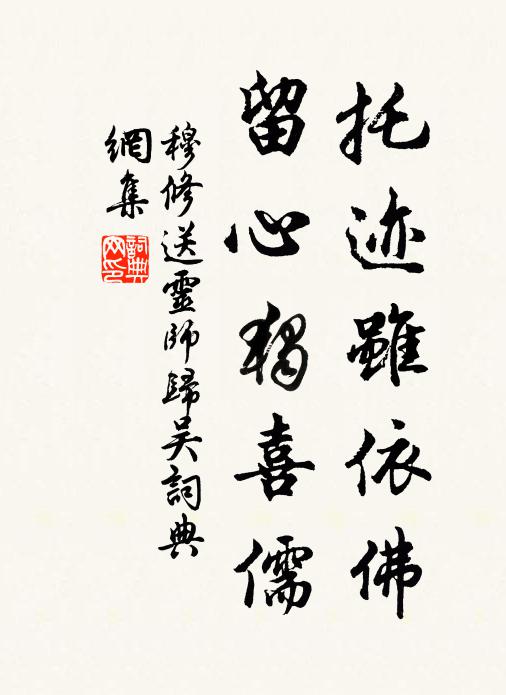 托迹雖依佛
留心獨喜儒
穆修送靈師歸吴詞典
網集
詞典
网印